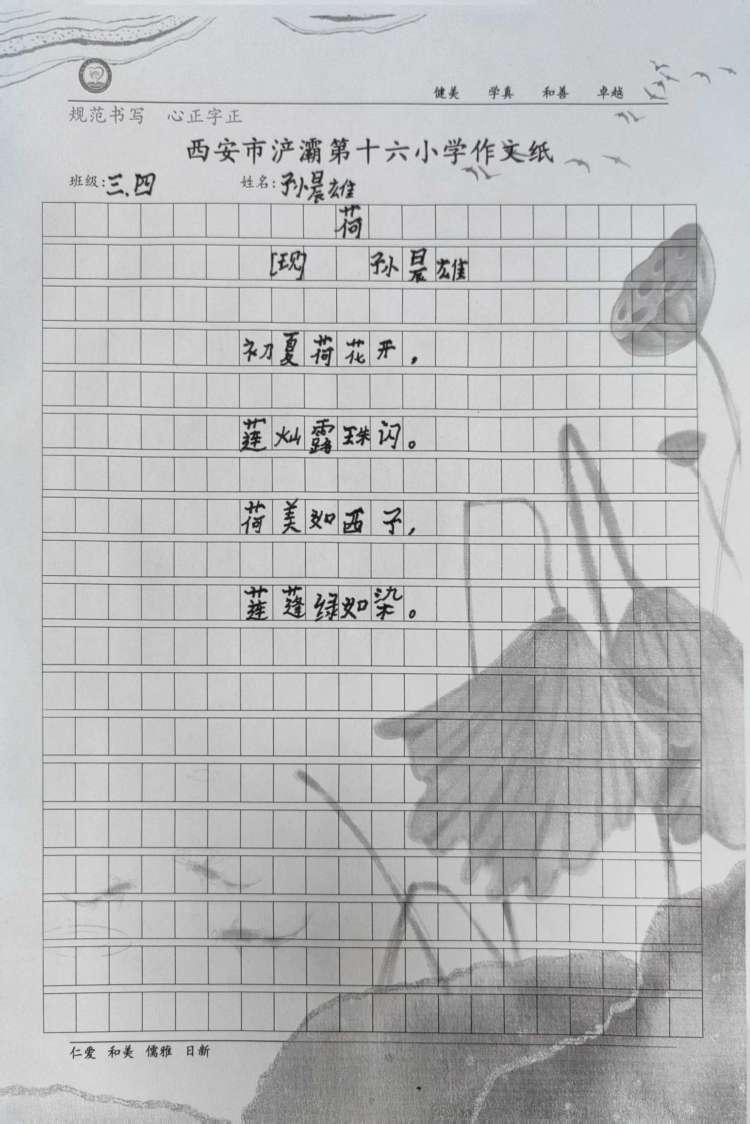 健美 学真 和善 卓越
规范书写 心正字正
西安市浐灞第十六小学作文纸
班级:三.四 姓名:孙晨雄
荷
[现] 孙晨雄
初夏荷花开，
莲灿露珠闪。
荷美如西子，
莲蓬绿如染。
仁爱 和美 儒雅 日新